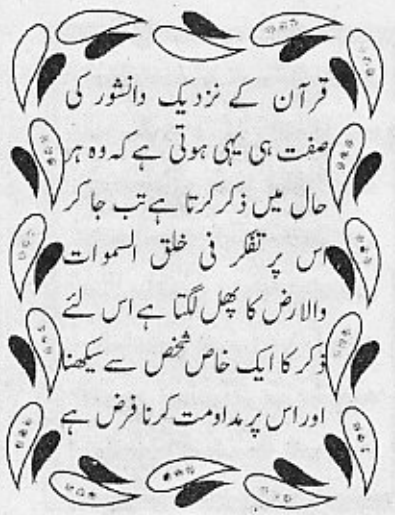 قرآن کے نزدیک دانشور کی
صفت ہی یہی ہوتی ہے کہ وہ ہر
حال میں ذکر کرتا ہے تب جا کر
اس پر تفکر فی خلق السموات
والارض کا پھل لگتا ہے اس لئے
ذکر کا ایک خاص شخص سے سیکھنا
اور اس پر مداومت کرنا فرض ہے